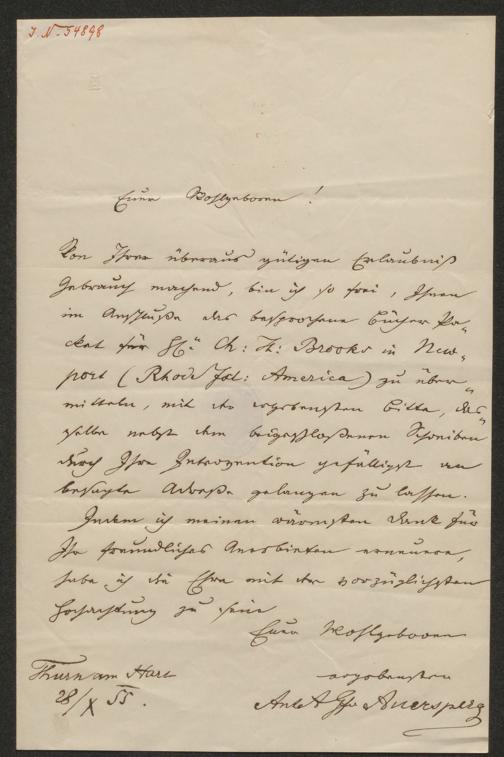 J. N. 54898
Euer Wohlgeboren!
Von Ihrer überaus gütigen Erlaubniß
Gebrauch machend, bin ich so frei, Ihnen
im Anschluße das besprochene Bücher Pa„
cket für H: Ch: T: Brooks in New„
port (Rhode Isl: America) zu über„
mitteln, mit der ergebensten Bitte, das„
selbe nebst dem beigeschloßenen Schreiben
durch Ihre Intervention gefälligst an
besagte Adreße gelangen zu lassen.
Indem ich meinen wärmsten Dank für
Ihr freundliches Anerbieten erneuere,
habe ich die Ehre mit der vorzüglichsten
Hochachtung zu sein
Euer Wohlgeboren
ergebenster
Thurn am Hart
28/X 55.
Ant A Gf Auersperg